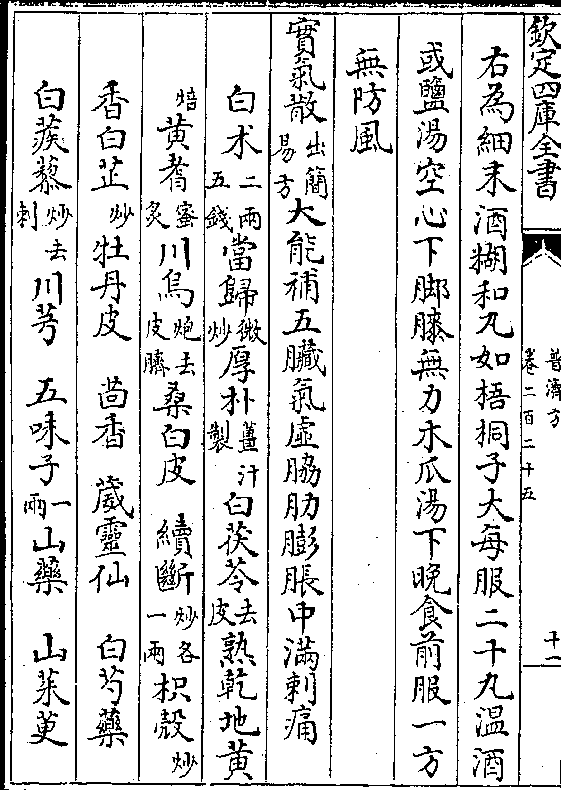 欽定四庫全書
普濟方
卷二百二十五
十一
右為細末酒糊和丸如梧桐子大每服二十丸温酒
或鹽湯空心下脚膝無力木瓜湯下晩食前服一方
無防風
實氣散出簡易方大能補五臟氣虚脇肋膨脹中滿刺痛
白术二兩五錢當歸微炒厚朴薑汁製白茯苓去皮熟乾地黄
焙黄耆蜜炙川烏炮去皮臍桑白皮續斷炒各一兩枳殻炒
香白芷炒牡丹皮茴香葳靈仙白芍藥
白蒺藜炒去刺川芎五味子一兩山藥山茱萸